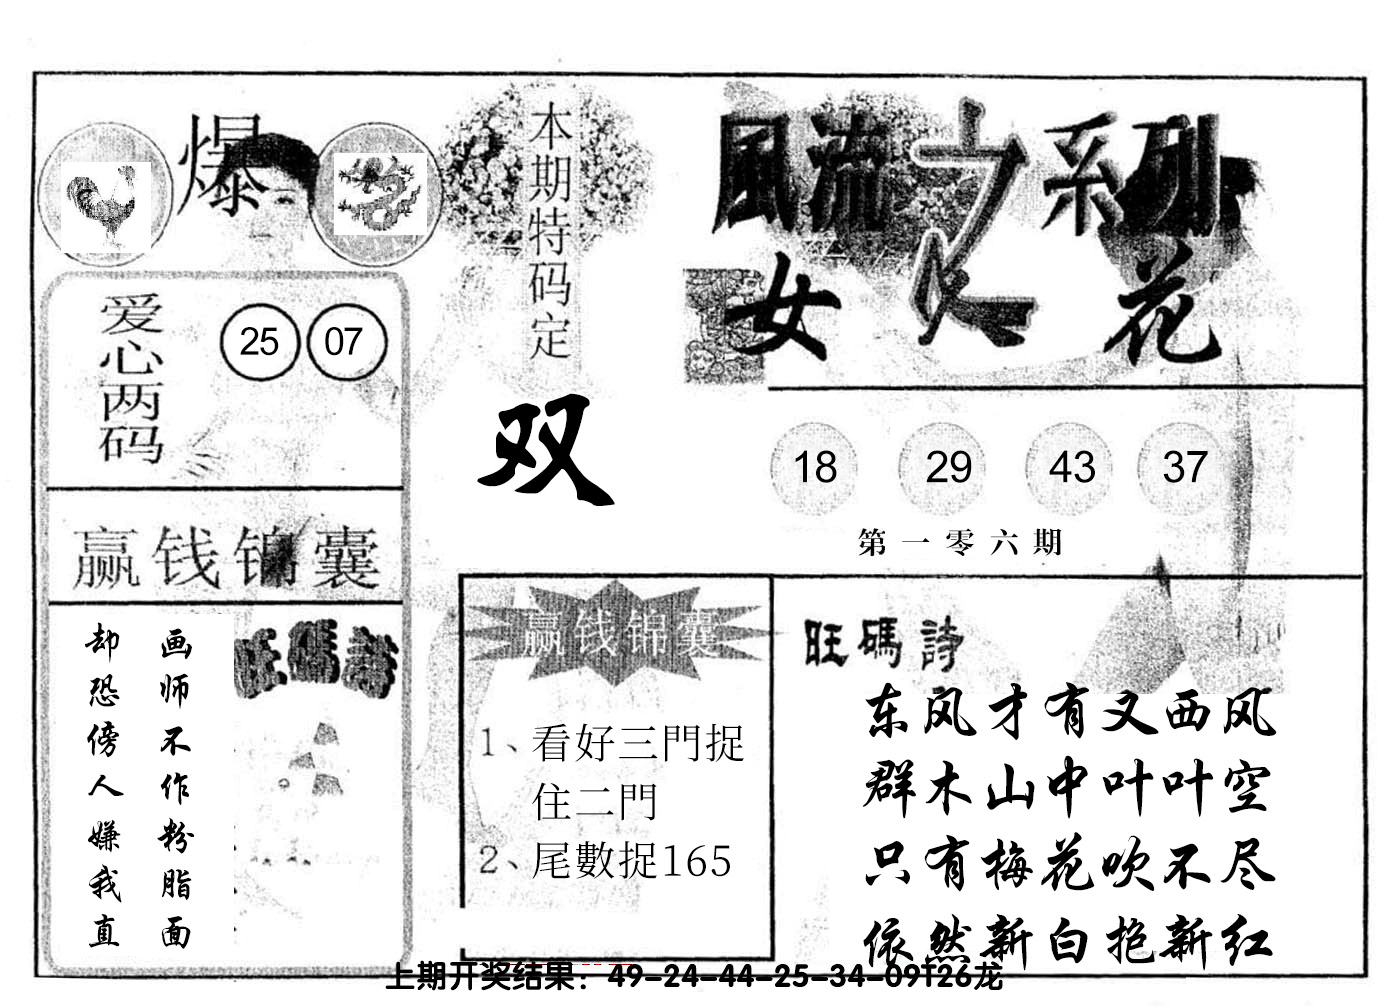 爆
本期特码定
双
爱心两码
25 07
赢钱锦囊
画师不作粉脂面
却恐傍人嫌我直
旺碼詩
風流之系列
女人花
18 29 43 37
第一零六期
赢钱锦囊
1、看好三門捉
住二門
2、尾數捉165
旺碼詩
东风才有又西风
群木山中叶叶空
只有梅花吹不尽
依然新白抱新红
上期开奖结果：49-24-44-25-34-09T26龙